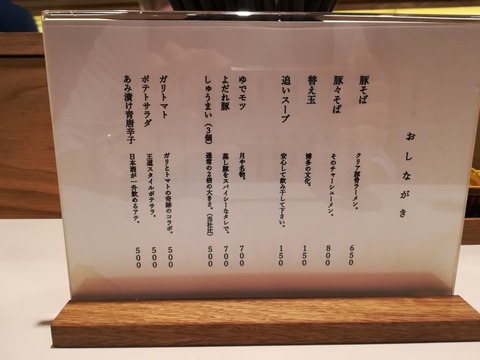 おしながき
豚そば クリア豚骨ラーメン。 650
豚々そば そのチャーシューメン。 800
替え玉 博多の文化。 150
追いスープ 安心して飲み干して下さい。 150
ゆでモツ 月や名物。 700
よだれ豚 蒸し豚をスパイシーなタレで。 700
しゅうまい(3個) 通常の2倍の大きさ。(当社比) 500
ガリトマト ガリとトマトの奇跡のコラボ。 500
ポテトサラダ 王道スタイルポテサラ。 500
あみ漬け青唐辛子 日本酒が一升飲めるアテ。 500